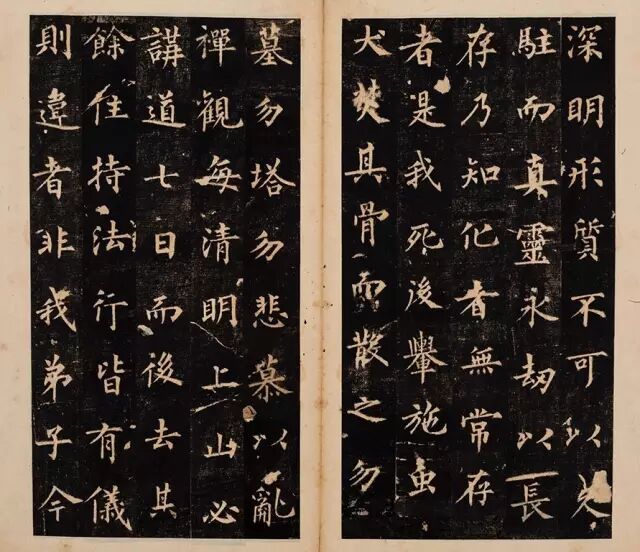 深明形質不可以久
駐而真靈永劫以長
存乃知化者無常存
者是我死後轝施虫
犬焚其骨而散之勿
墓勿塔勿悲慕以亂
禪觀每清明上山必
講道七日而後去其
餘住持法行皆有儀
則違者非我弟子今